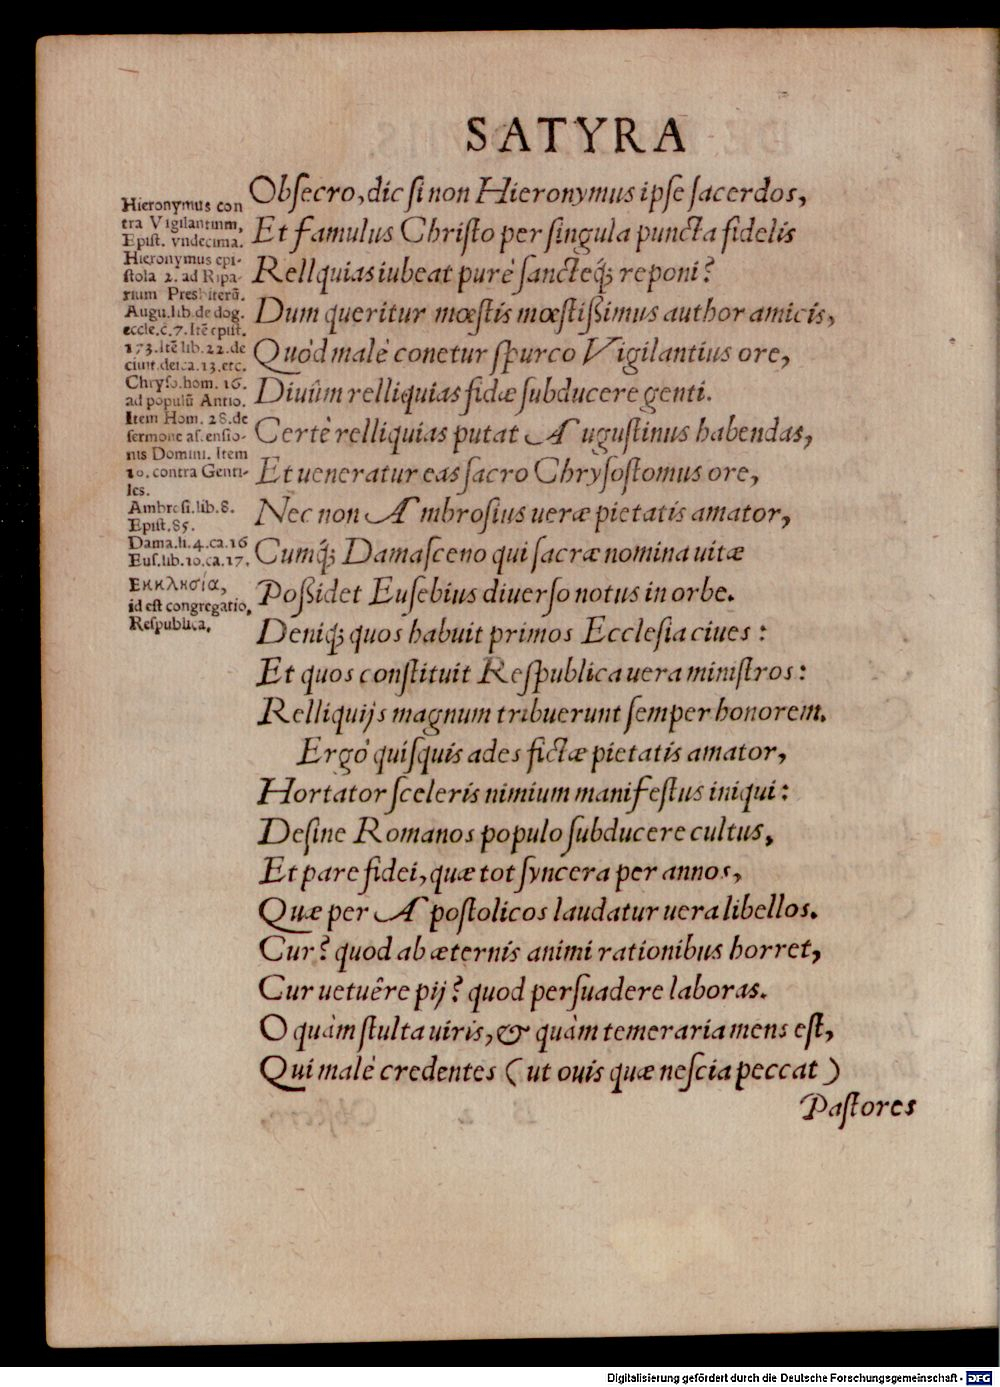 SATYRA
Obſecro, dic ſi non Hieronymus ipſe ſacerdos,
Et famulus Chriſto per ſingula puncta fidelis
Rellquias iubeat purè ſancteq́; reponi?
Dum queritur mœſtis mœſtißimus author amicis,
Quòd malè conetur ſpurco Vigilantius ore,
Diuûm relliquias fidæ ſubducere genti.
Certè relliquias putat Auguſtinus habendas,
Et ueneratur eas ſacro Chryſoſtomus ore,
Nec non Ambroſius ueræ pietatis amator,
Cumq́; Damaſceno qui ſacræ nomina uitæ
Poßidet Euſebius diuerſo notus in orbe.
Deniq́; quos habuit primos Eccleſia ciues:
Et quos conſtituit Reſpublica uera miniſtros:
Relliquijs magnum tribuerunt ſemper honorem.
Ergò quiſquis ades fictæ pietatis amator,
Hortator ſceleris nimium manifeſtus iniqui:
Deſine Romanos populo ſubducere cultus,
Et pare fidei, quæ tot ſyncera per annos,
Quæ per Apoſtolicos laudatur uera libellos.
Cur? quod ab æternis animi rationibus horret,
Cur uetuêre pij? quod perſuadere laboras.
O quàm ſtulta uiris, & quàm temeraria mens eſt,
Qui malè credentes (ut ouis quæ neſcia peccat)
Paſtores
Hieronymus con
tra Vigilantium,
Epiſt. vndecima.
Hieronymus epi-
ſtola 2. ad Ripa-
rium Presbiterū.
Augu. lib. de dog.
eccle. c. 7. Itē epiſt.
173. Itē lib. 22. de
ciuit. dei ca. 13. etc.
Chryſo. hom. 16.
ad populū Antio.
Item Hom. 28. de
ſermone aſcenſio-
nis Domini. Item
10. contra Genti-
les.
Ambroſi. lib. 8.
Epiſt. 85.
Dama. li. 4. ca. 16
Euſ. lib. 10. ca. 17.
Εκκλησία,
id eſt congregatio,
Reſpublica.
Digitalisierung gefördert durch die Deutsche Forschungsgemeinschaft - DFG